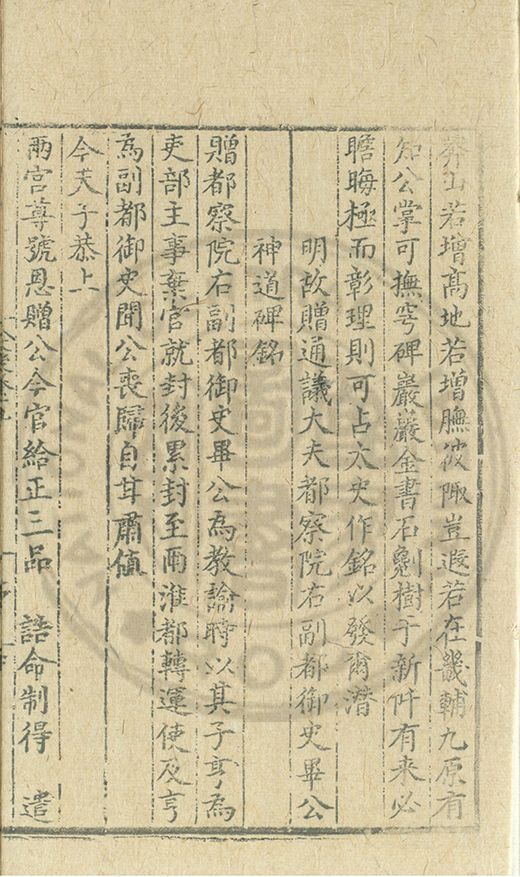 秀山若增高地若增膴彼陬豈遐若在畿輔九原有
知公掌可撫穹碑巖巖金書石劖樹于新阡有来必
瞻晦極而彰理則可占太史作銘以發甭潛
明故贈通議大夫都察院右副都御史畢公
神道碑銘
贈都察院右副都御史畢公為教諭時以其子亨為
吏部主事棄官就封後累封至兩淮都轉運使及亨
為副都御史聞公喪歸自甘肅值
今天子恭上
兩宮尊號恩贈公今官給正三品　誥命制得　遣